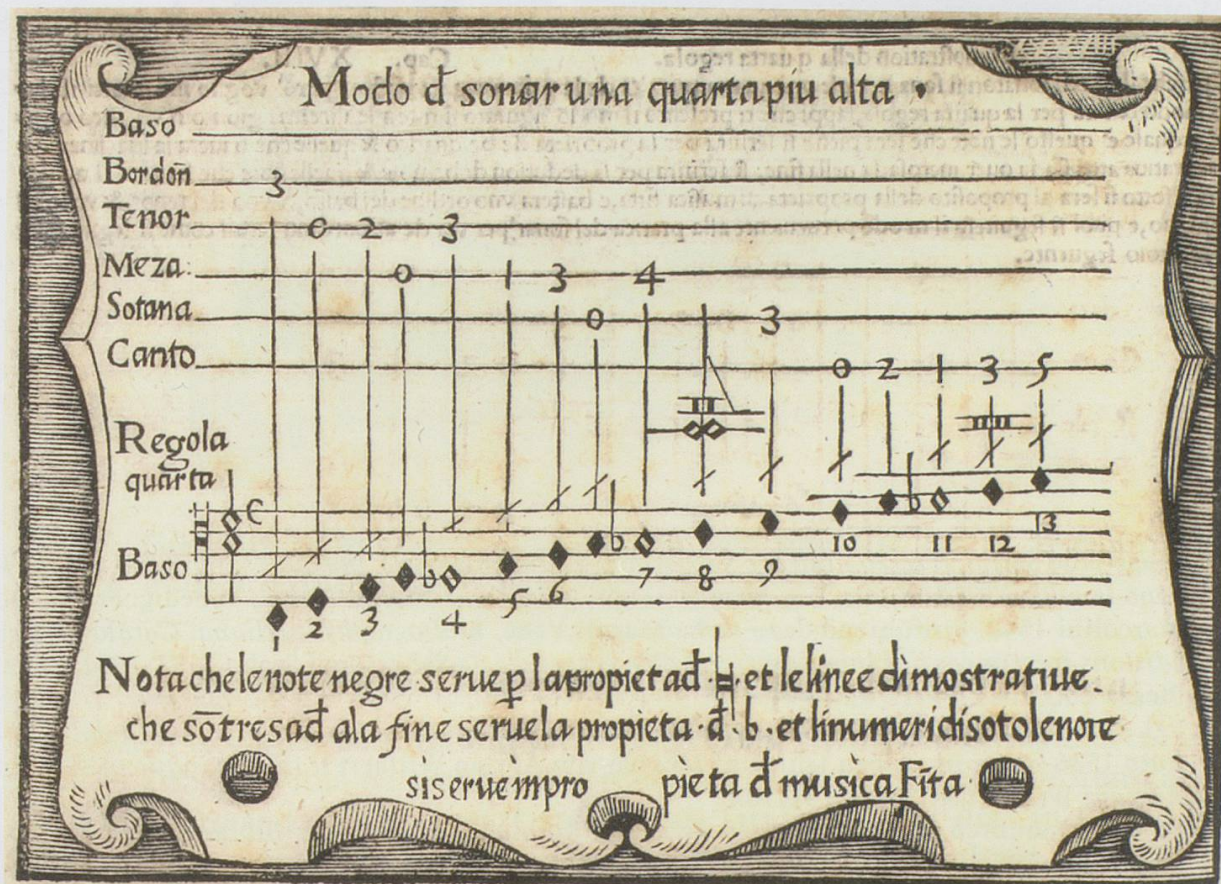 Modo d̄ sonar una quarta piu alta ·
Baso
Bordōn
3
Tenor
0 2 3
Meza:
0 1 3 4
Sotana
0 3
Canto
0 2 1 3 5
Regola
quarta
C
Baso
b b b
1 2 3 4 5 6 7 8 9 10 11 12 13
Nota che le note negre serue p̱ la propieta d̄ ·♮· et le linee dimostratiue
che sōtresad̄ ala fine serue la propieta · d̄ · b · et li numeri disoto le note
si serue impro pieta d̄ musica Fīta